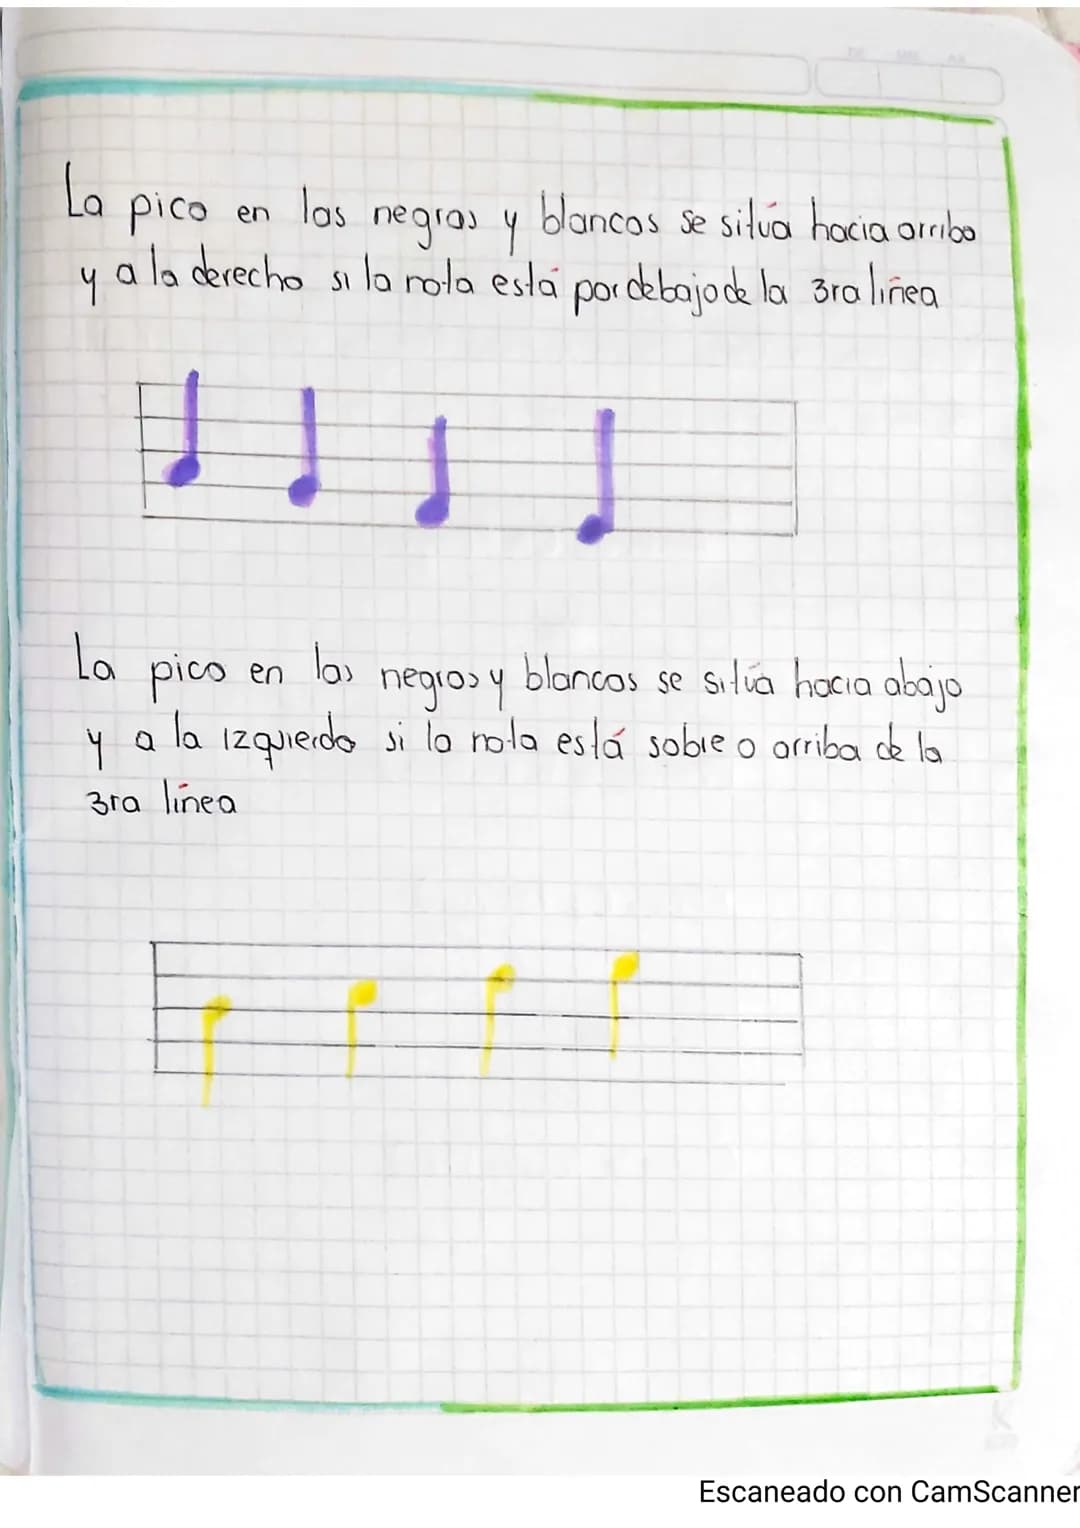 La pico en las negras y blancas se sitúa hacia arriba
y a la derecha si la nota está por debajo de la 3ra línea
La pico en las negras y blancas se sitúa hacia abajo
y a la izquierda si la nota está sobre o arriba de la
3ra línea
Escaneado con CamScanner